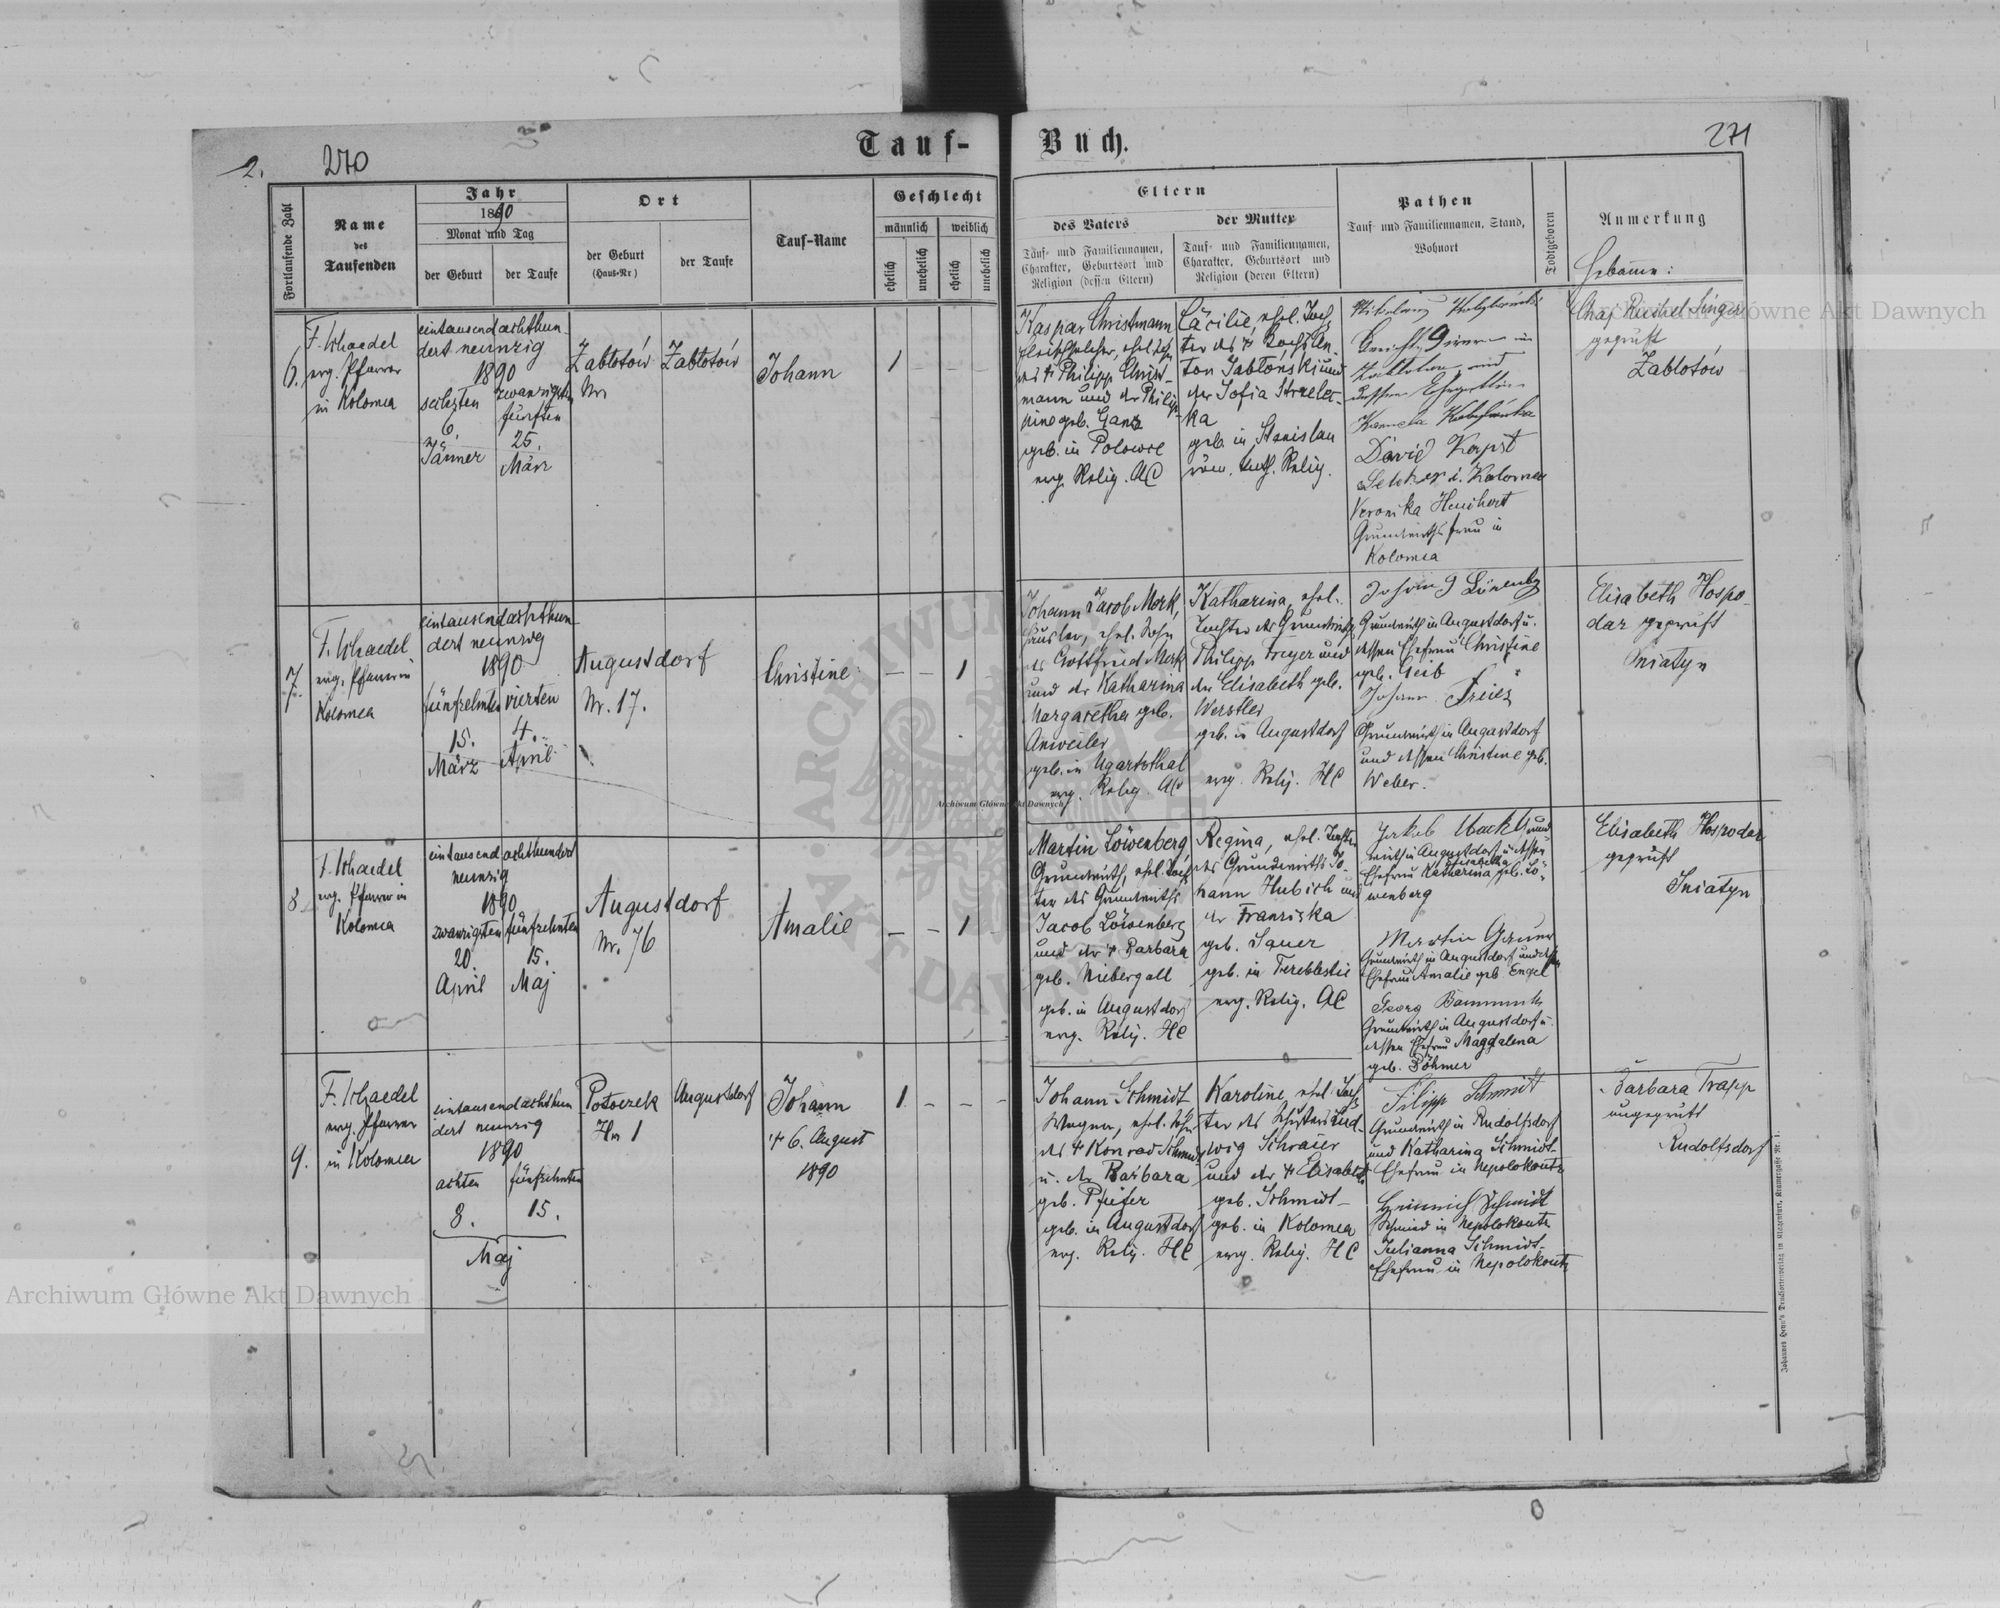 2.
270
Tauf-
Buch.
271
Fortlaufende Zahl
Name
des
Taufenden
Jahr
1890
Monat und Tag
der Geburt
der Taufe
Ort
der Geburt
(Haus-Nr)
der Taufe
Tauf-Name
Geschlecht
männlich
weiblich
ehelich
unehelich
ehelich
unehelich
Eltern
des Vaters
Tauf- und Familiennamen,
Charakter, Geburtsort und
Religion (dessen Eltern)
der Mutter
Tauf- und Familiennamen,
Charakter, Geburtsort und
Religion (deren Eltern)
Pathen
Tauf- und Familiennamen, Stand,
Wohnort
Todtgeboren
Anmerkung
Hebamme:
6.
F. Schaedel
evg. Pfarrer
in Kolomea
eintausendachthun-
dert neunzig
1890
sechsten
6.
Jänner
zwanzigsten
fünften
25.
März
Zabłotów
Nr
Zabłotów
Johann
1 – – –
Kaspar Christmann
ehel. Sohn
des + Philipp Christ-
mann und der Philip-
pine geb. Ganz
geb. in Polowce
evg. Relig. AC
Cäcilie, ehel. Toch-
ter des + An-
ton Jabłoński und
der Sofia Strzelec-
ka
geb. in Stanislau
röm. kath. Relig.
in
und
dessen Ehegattin
David Kopst
i. Kolomea
Veronika
Grundwirths frau in
Kolomea
Chaj Ruchel Singer
geprüft
Zabłotów
7.
F. Schaedel
evg. Pfarrer in
Kolomea
eintausendachthun-
dert neunzig
1890
fünfzehnten
15.
März
vierten
4.
April
Augustdorf
Nr. 17.
Christine
– – 1
Johann Jacob Mork,
Häusler, ehel. Sohn
des Gottfried Mork
und der Katharina
Margaretha geb.
Anweiler
geb. in Ugartsthal
evg. Relig. AC
Katharina, ehel.
Tochter des Grundwirths
Philipp Freyer und
der Elisabeth geb.
Werstler
geb. in Augustdorf
evg. Relig. HC
Grundwirth in Augustdorf u.
dessen Ehefrau Christine
geb. Geib
Johann Freier
Grundwirth in Augustdorf
und dessen Christine geb.
Weber.
Elisabeth Hospo-
dar geprüft
Sniatyn
8
F. Schaedel
evg. Pfarrer in
Kolomea
eintausend achthundert
neunzig
1890
zwanzigsten
20.
April
fünfzehnten
15.
Maj
Augustdorf
Nr. 76
Amalie
– – 1
Martin Löwenberg,
Grundwirth, ehel. Toch-
ter des Grundwirths
Jacob Löwenberg
und der + Barbara
geb. Niebergall
geb. in Augustdorf
evg. Relig. HC
Regina, ehel. Tochter
des Grundwirths Jo-
hann Hubich und
der Franziska
geb. Sauer
geb. in Tereblestie
evg. Relig. AC
Jakob
wirth in Augustdorf u. dessen
Ehefrau Katharina geb. Lö-
wenberg
Martin
Grundwirth in Augustdorf und dessen
Ehefrau Amalie geb. Engel
Georg
Grundwirth in Augustdorf u.
dessen Ehefrau Magdalena
geb. Böhmer
Elisabeth Hospodar
geprüft
Sniatyn
9.
F. Schaedel
evg. Pfarrer
in Kolomea
eintausendachthun
dert neunzig
1890
achten
8.
fünfzehnten
15.
Maj
Potoczek
Hs 1
Augustdorf
Johann
+ 6. August
1890
1 – – –
Johann Schmidt
Wagner, ehel. Sohn
des + Konrad Schmidt
u. der Barbara
geb. Pfeifer
geb. in Augustdorf
evg. Relig. HC
Karoline, ehel. Toch-
ter des Schusters Lud-
wig Schraier
und der + Elisabeth
geb. Schmidt
geb. in Kolomea
evg. Relig. HC
Filipp Schmidt
Grundwirth in Rudolfsdorf
und Katharina Schmidt
Ehefrau in Nepolokoutz
Heinrich Schmidt
Schmied in Nepolokoutz
Julianna Schmidt
Ehefrau in Nepolokoutz
Barbara Trapp
ungeprüft
Rudolfsdorf
Archiwum Główne Akt Dawnych
Archiwum Główne Akt Dawnych
Archiwum Główne Akt Dawnych